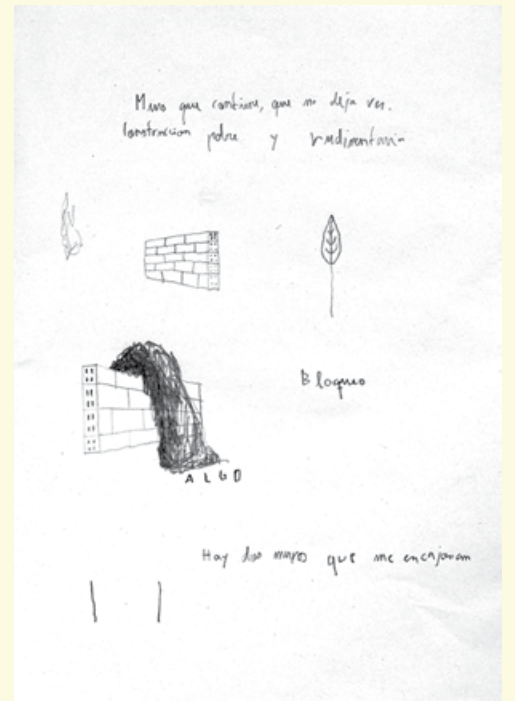 Muro que contiene, que no deja ver.
Construccion pobre y rudimentaria
Bloqueo
ALGO
Hay dos muros que me encajonan